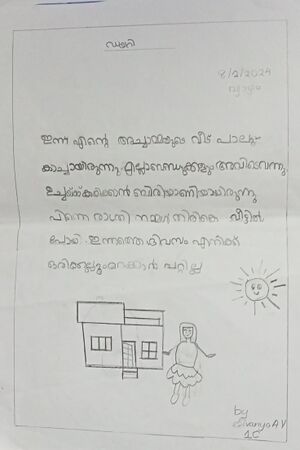 ഡയറി
8/2/2024
വ്യാഴം
ഇന്ന് എന്റെ അച്ചാമ്മയുടെ വീട് പാലു
കാച്ചായിരുന്നു. എല്ലാബന്ധുക്കളും അവിടെവന്നു.
ഉച്ചയ്ക്ക്കഴിക്കാൻ ബിരിയാണിയായിരുന്നു
പിന്നെ രാത്രി നമ്മൾ തിരികെ വീട്ടിൽ
പോയി. ഇന്നത്തെദിവസം എനിക്ക്
ഒരിക്കലുംമറക്കാൻ പറ്റില്ല
by
Divanya A V
1C